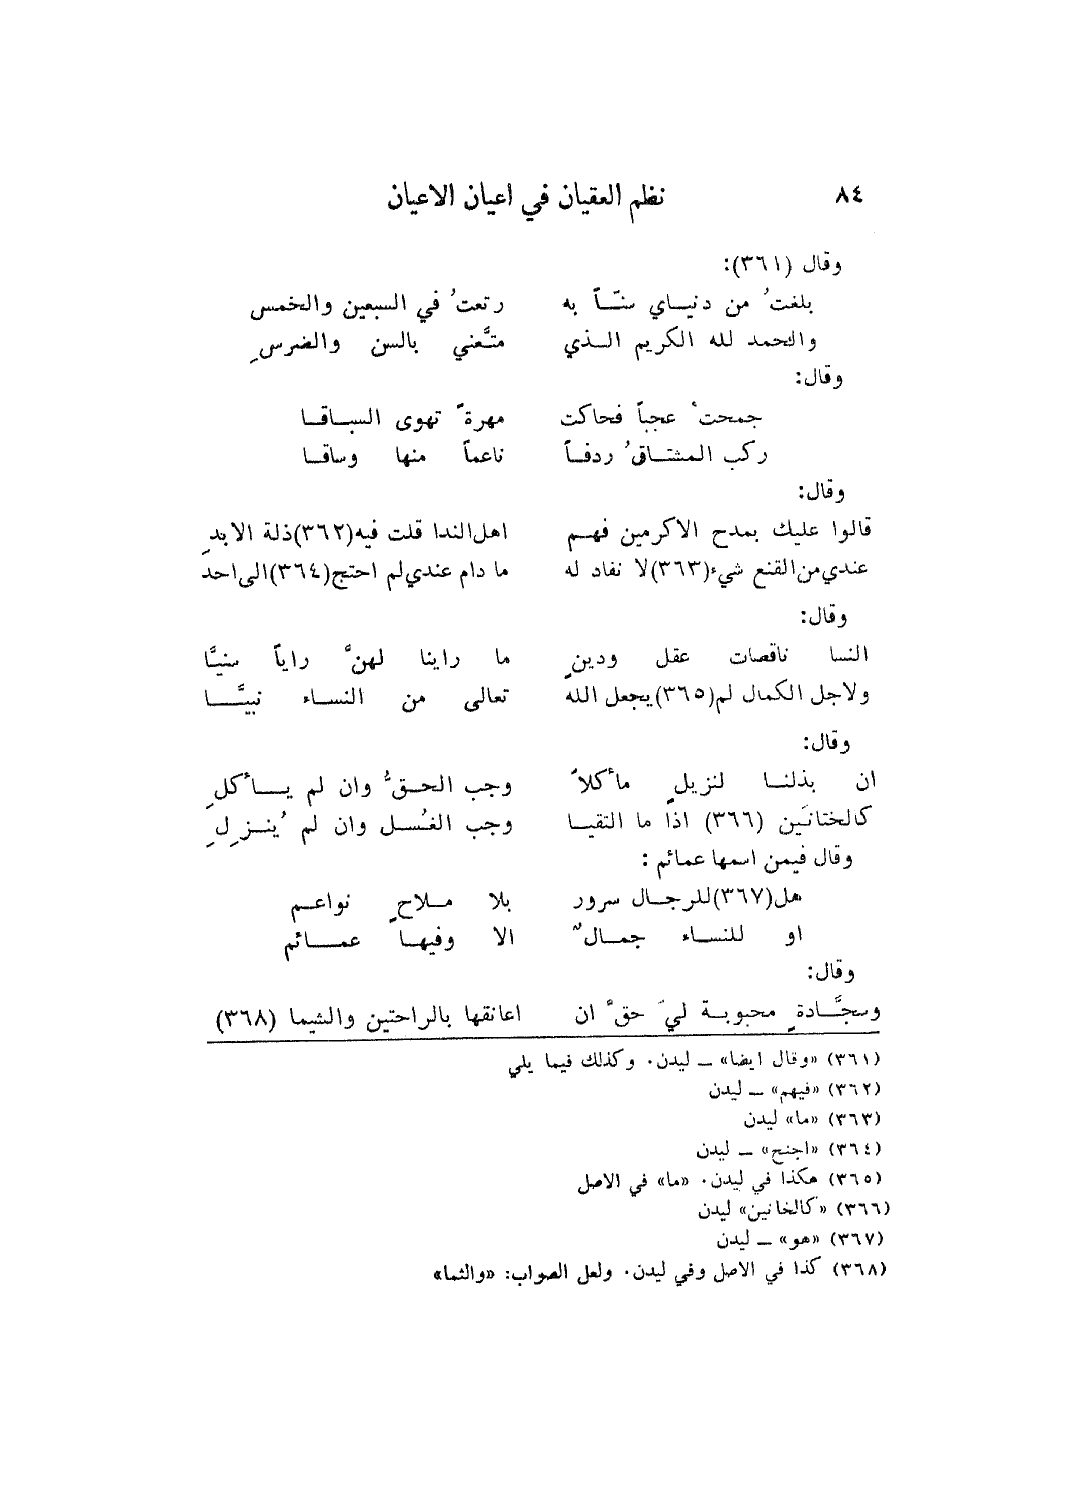 ٨٤ نظم العقيان في اعيان الاعيان
وقال (٣٦١):
بلغتُ من دنياي سنّاً به رتعتُ في السبعين والخمس
والحمد لله الكريم الذي متَّعني بالسن والضرسِ
وقال:
جمحتْ عجباً فحاكت مهرةً تهوى السباقا
ركب المشتاقُ ردفاً ناعماً منها وساقا
وقال:
قالوا عليك بمدح الاكرمين فهم اهل الندا قلت فيه(٣٦٢)ذلة الابدِ
عندي من القنع شيء(٣٦٣)لا نفاد له ما دام عندي لم احتج(٣٦٤)الى احد
وقال:
النسا ناقصات عقل ودينٍ ما راينا لهنَّ راياً سنيَّا
ولاجل الكمال لم(٣٦٥)يجعل الله تعالى من النساء نبيَّا
وقال:
ان بذلنا لنزيلٍ مأكلاً وجب الحقُّ وان لم يأكلِ
كالختانَين (٣٦٦) اذا ما التقيا وجب الغُسل وان لم يُنزِلِ
وقال فيمن اسمها عمائم :
هل(٣٦٧)للرجال سرور بلا ملاحٍ نواعم
او للنساء جمالٌ الا وفيها عمائم
وقال:
وسجَّادةٍ محبوبة ليَ حقَّ ان اعانقها بالراحتين والشيما (٣٦٨)
(٣٦١) «وقال ايضا» ـ ليدن. وكذلك فيما يلي
(٣٦٢) «فيهم» ـ ليدن
(٣٦٣) «ما» ليدن
(٣٦٤) «اجنح» ـ ليدن
(٣٦٥) هكذا في ليدن. «ما» في الاصل
(٣٦٦) «كالخانين» ليدن
(٣٦٧) «هو» ـ ليدن
(٣٦٨) كذا في الاصل وفي ليدن. ولعل الصواب: «والثما»